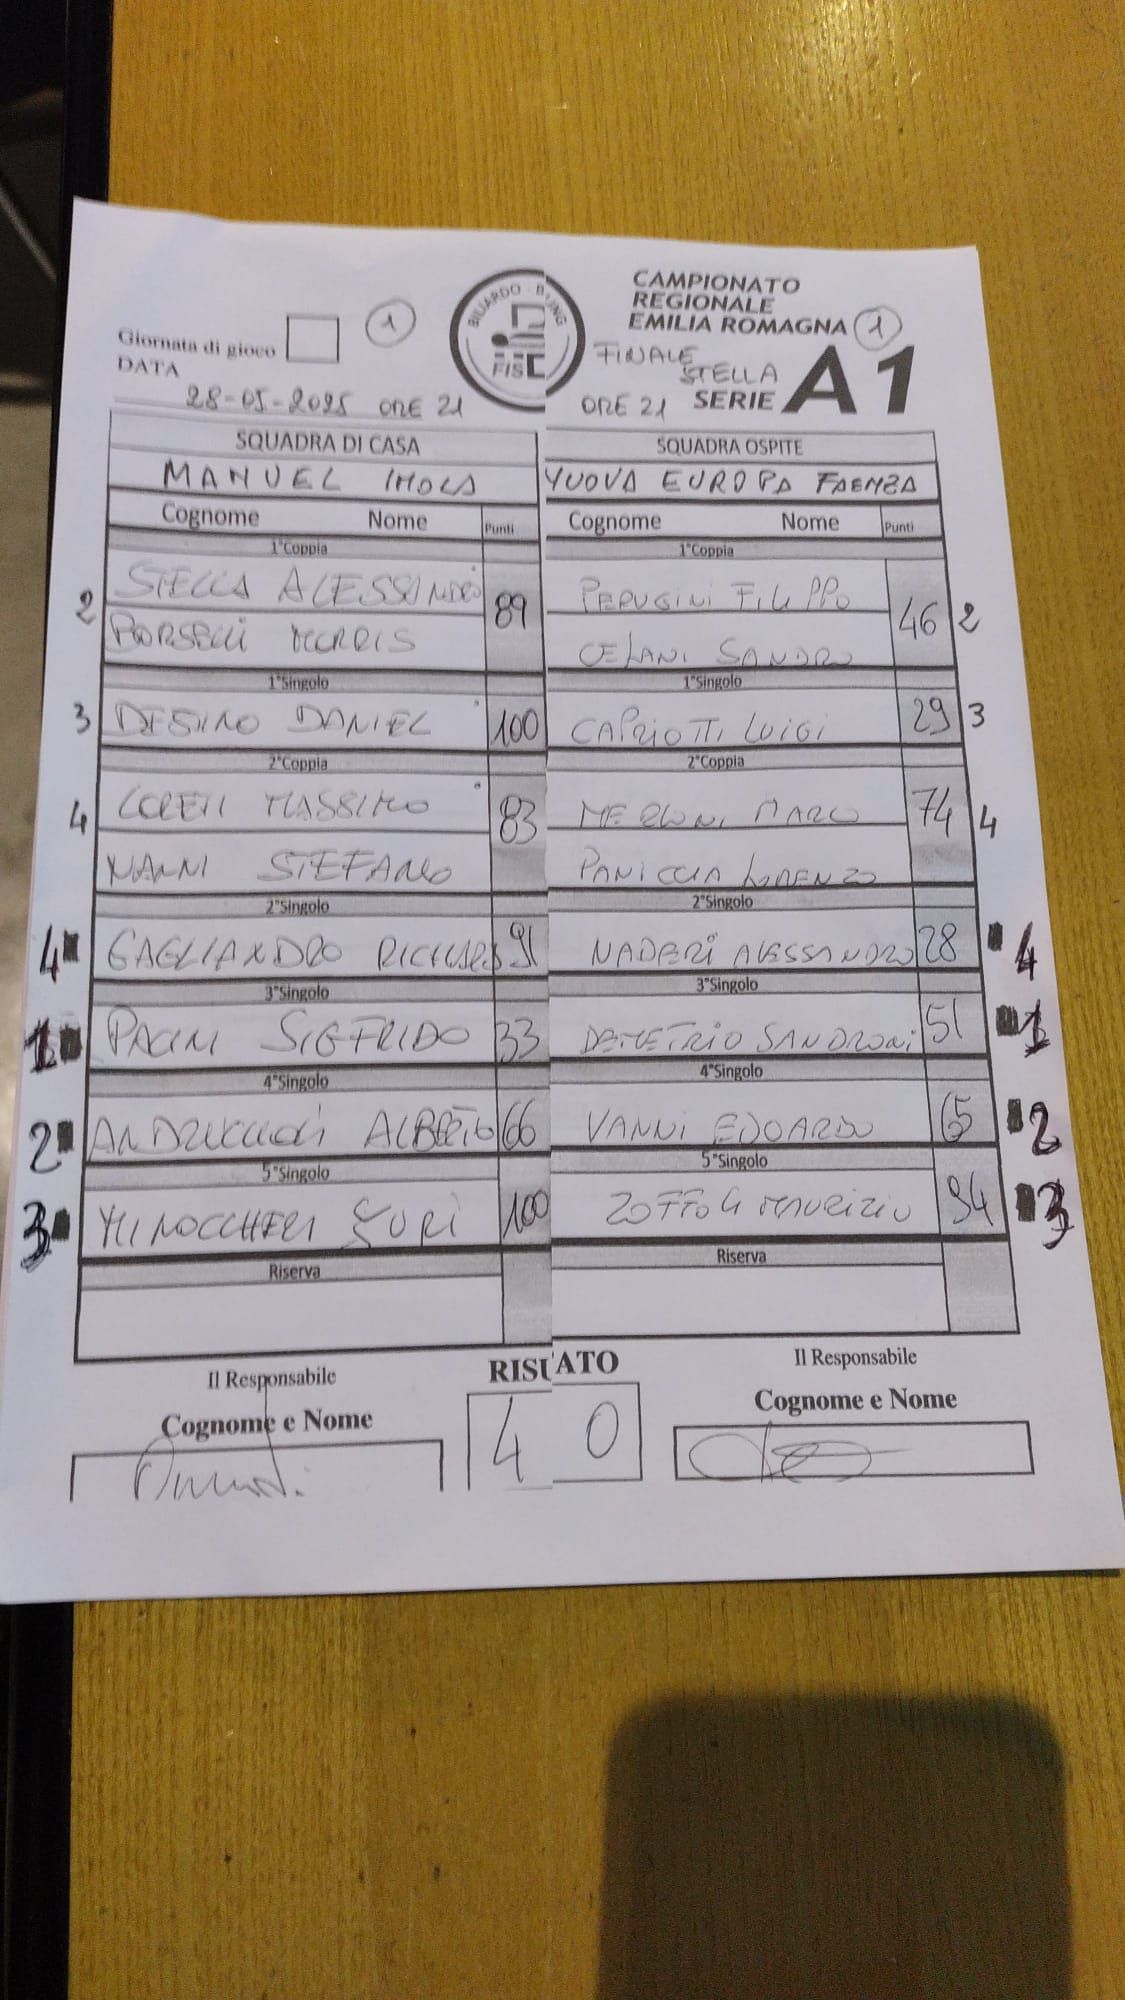 CAMPIONATO
REGIONALE
EMILIA ROMAGNA 1
Giornata di gioco 1
BILIARDO - B
FIS
FINALE
STELLA
SERIE A1
DATA
28-05-2025 ORE 21
ORE 21
SQUADRA DI CASA SQUADRA OSPITE
MANUEL IMOLA NUOVA EUROPA FAENZA
Cognome Nome Punti Cognome Nome Punti
1°Coppia 1°Coppia
2 STELLA ALESSANDRO 89 PERUGINI FILIPPO 46 2
BORSELLI MORRIS CELANI SANDRO
1°Singolo 1°Singolo
3 DESIMO DANIEL 100 CAPRIOTTI LUIGI 29 3
2°Coppia 2°Coppia
4 LORETI MASSIMO 83 MERLONI MARCO 74 4
NANNI STEFANO PANICCIA LORENZO
2°Singolo 2°Singolo
4 GAGLIANDRO 91 NADERI ALESSANDRO 28 4
3°Singolo 3°Singolo
1 PACINI SIGFRIDO 33 DEMETRIO SANDRONI 51 1
4°Singolo 4°Singolo
2 ALBERTO 66 VANNI EDOARDO 65 2
5°Singolo 5°Singolo
3 MINOCCHERI YURI 100 ZOFFOLI MAURIZIO 94 3
Riserva Riserva
Il Responsabile RISU ATO Il Responsabile
Cognome e Nome 4 0 Cognome e Nome